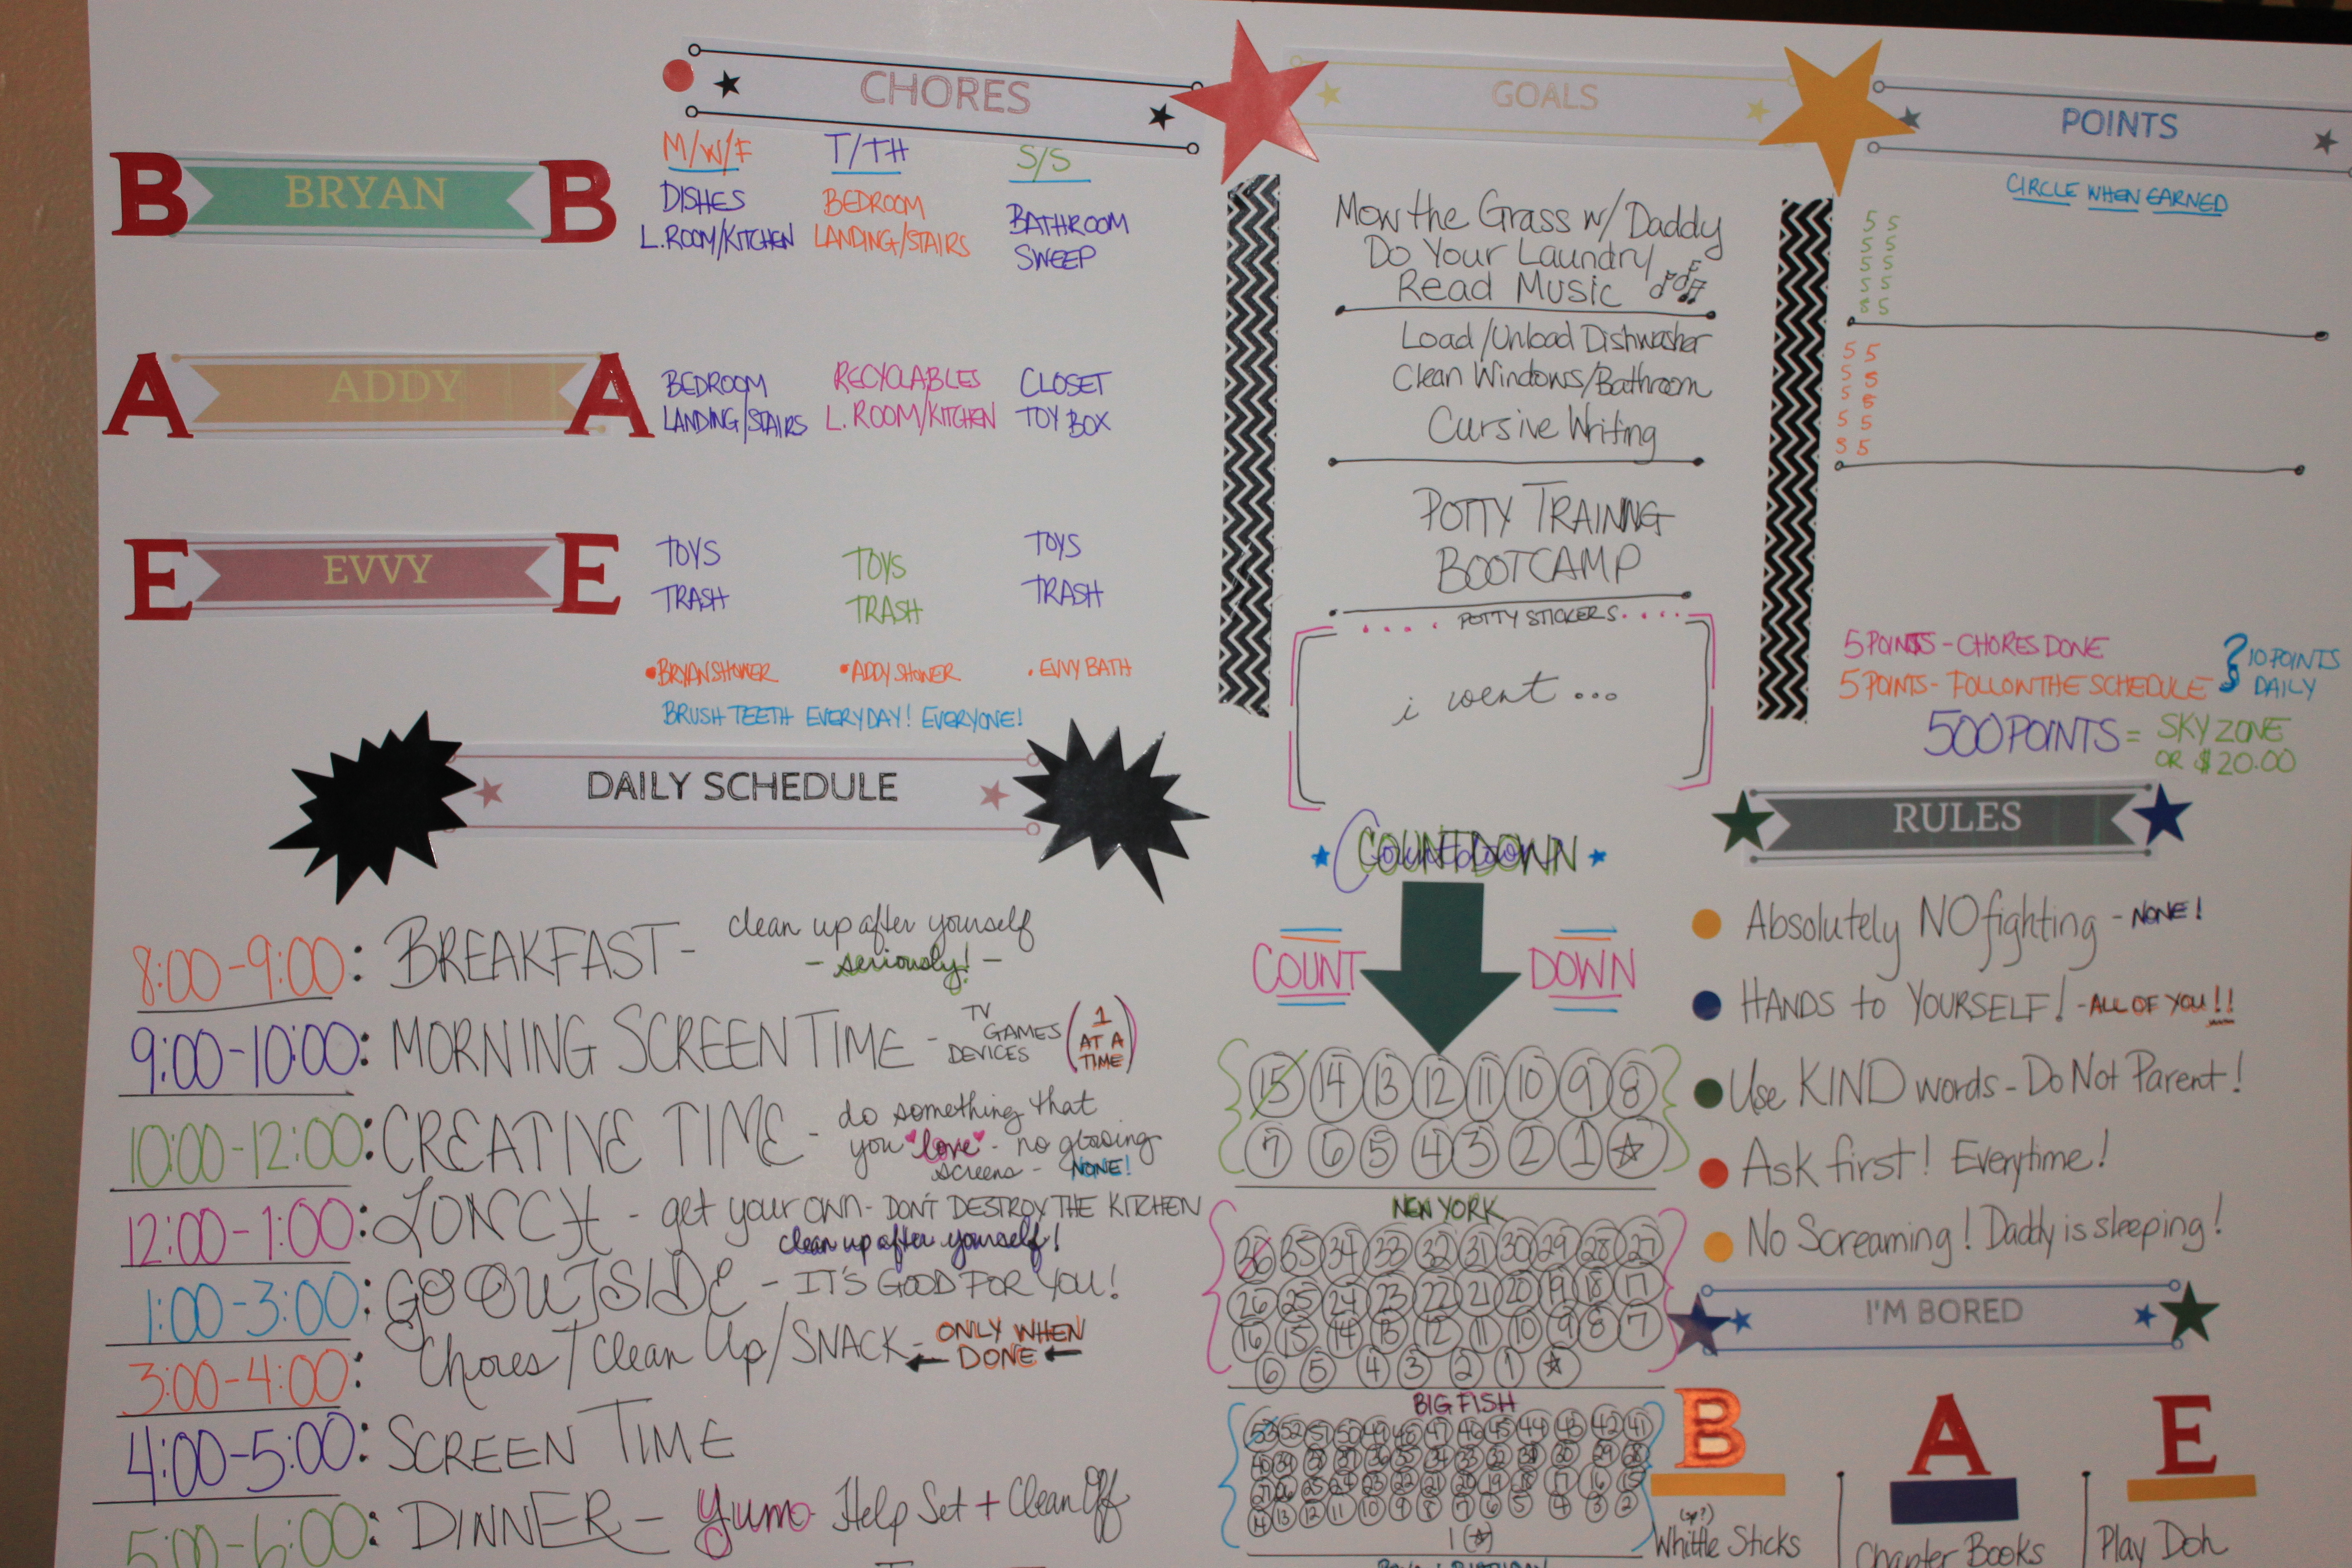 CHORES
GOALS
POINTS
B BRYAN B
M/W/F
DISHES
L.ROOM/KITCHEN
T/TH
BEDROOM
LANDING/STAIRS
S/S
BATHROOM
SWEEP
A ADDY A
BEDROOM
LANDING/STAIRS
RECYCLABLES
L. ROOM/KITCHEN
CLOSET
TOY BOX
E EVVY E
TOYS
TRASH
TOYS
TRASH
TOYS
TRASH
•BRYAN SHOWER •ADDY SHOWER • EVVY BATH
BRUSH TEETH EVERYDAY! EVERYONE!
Mow the Grass w/ Daddy
Do Your Laundry/
Read Music
Load/Unload Dishwasher
Clean Windows/Bathroom
Cursive Writing
POTTY TRAINNG
BOOTCAMP
POTTY STICKERS
i went ...
CIRCLE WHEN EARNED
5 5
5 5
5 5
5 5
8 5
5 5
5 5
5 5
5 5
5 5
5 POINTS - CHORES DONE
5 POINTS - FOLLOW THE SCHEDULE
10 POINTS
DAILY
500 POINTS = SKY ZONE
OR $20.00
DAILY SCHEDULE
8:00-9:00: BREAKFAST - clean up after yourself
- seriously! -
9:00-10:00: MORNING SCREEN TIME - TV
GAMES
DEVICES
(1
AT A
TIME)
10:00-12:00: CREATIVE TIME - do something that
you love - no glowing
screens - NONE!
12:00-1:00: LUNCH - get your own - DON'T DESTROY THE KITCHEN
clean up after yourself!
1:00-3:00: GO OUTSIDE - IT'S GOOD FOR YOU!
3:00-4:00: Chores/Clean Up/SNACK - ONLY WHEN
DONE
4:00-5:00: SCREEN TIME
5:00-6:00: DINNER - Yum Help Set + Clean Off
COUNTDOWN
COUNT DOWN
15 14 13 12 11 10 9 8
7 6 5 4 3 2 1
NEW YORK
36 35 34 33 32 31 30 29 28 27
26 25 24 23 22 21 20 19 18 17
16 15 14 13 12 11 10 9 8 7
6 5 4 3 2 1
BIG FISH
53 52 51 50 49 48 47 46 45 44 43 42 41
14 13 12 11 10 9 8 7 6 5 4 3 2
1
RULES
Absolutely NO fighting - NONE!
HANDS to YOURSELF! - ALL OF YOU!!
Use KIND words - Do Not Parent!
Ask first! Everytime!
No Screaming! Daddy is sleeping!
I'M BORED
B A E
Whittle Sticks
Chapter Books
Play Doh